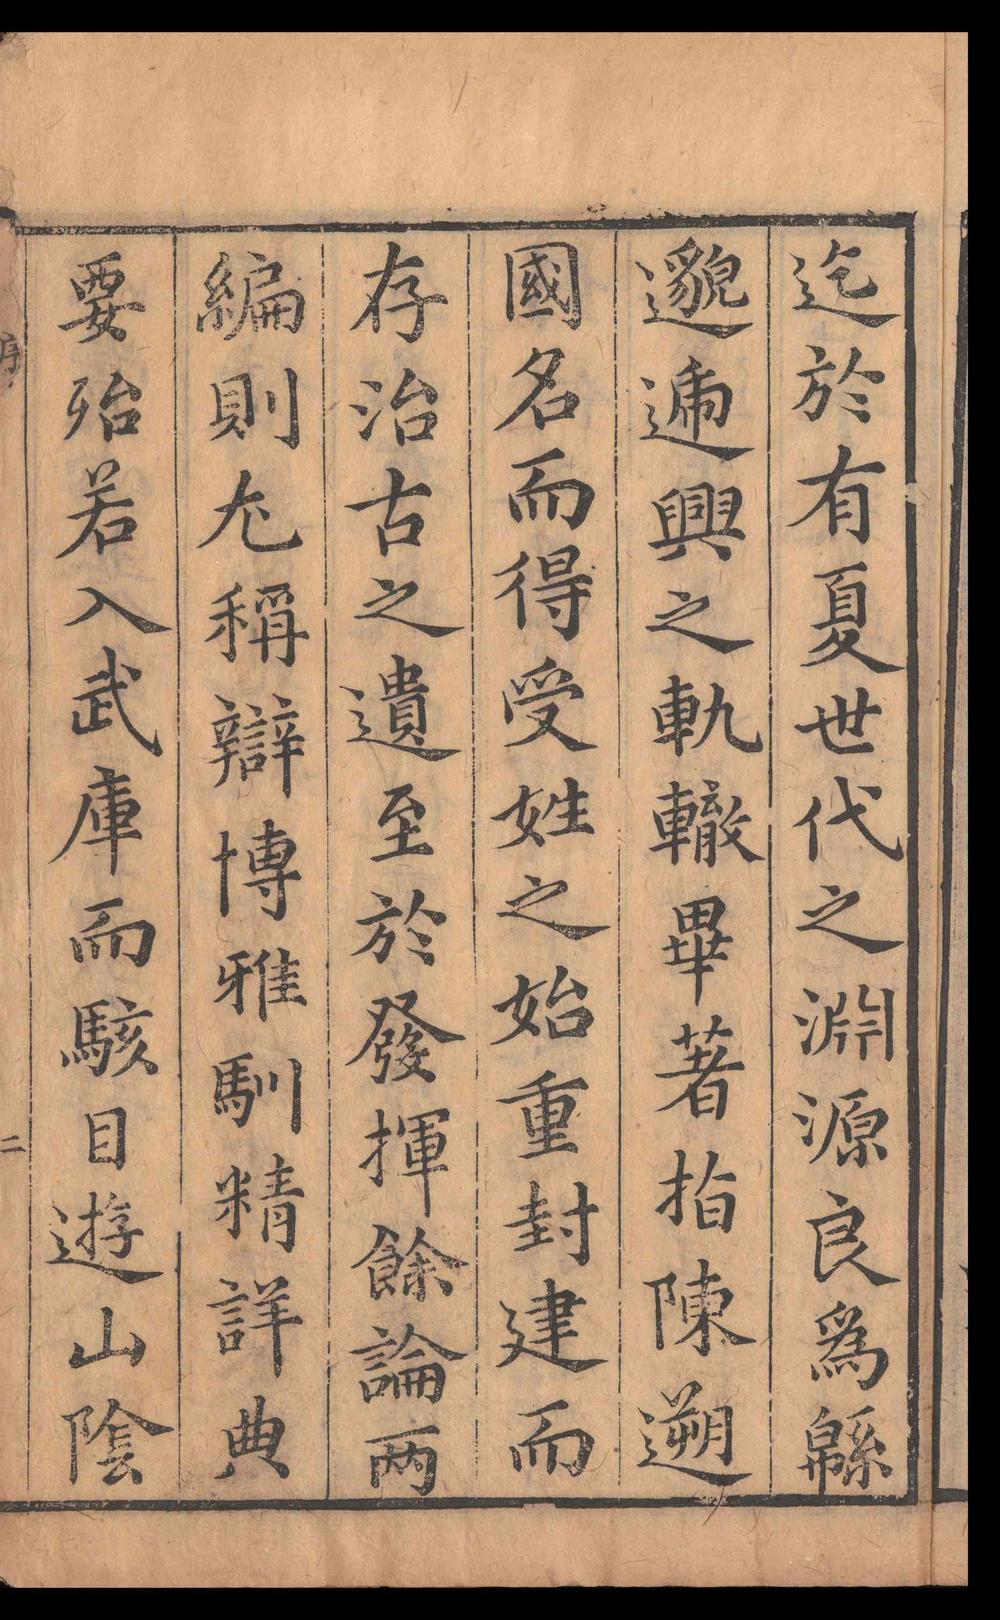 迄於有夏世代之淵源良爲緜
邈逓興之軌轍畢著指陳遡
國名而得受姓之始重封建而
存治古之遺至於發揮餘論兩
編則尤稱辯博雅馴精詳典
要殆若入武庫而駭目遊山陰
序
二